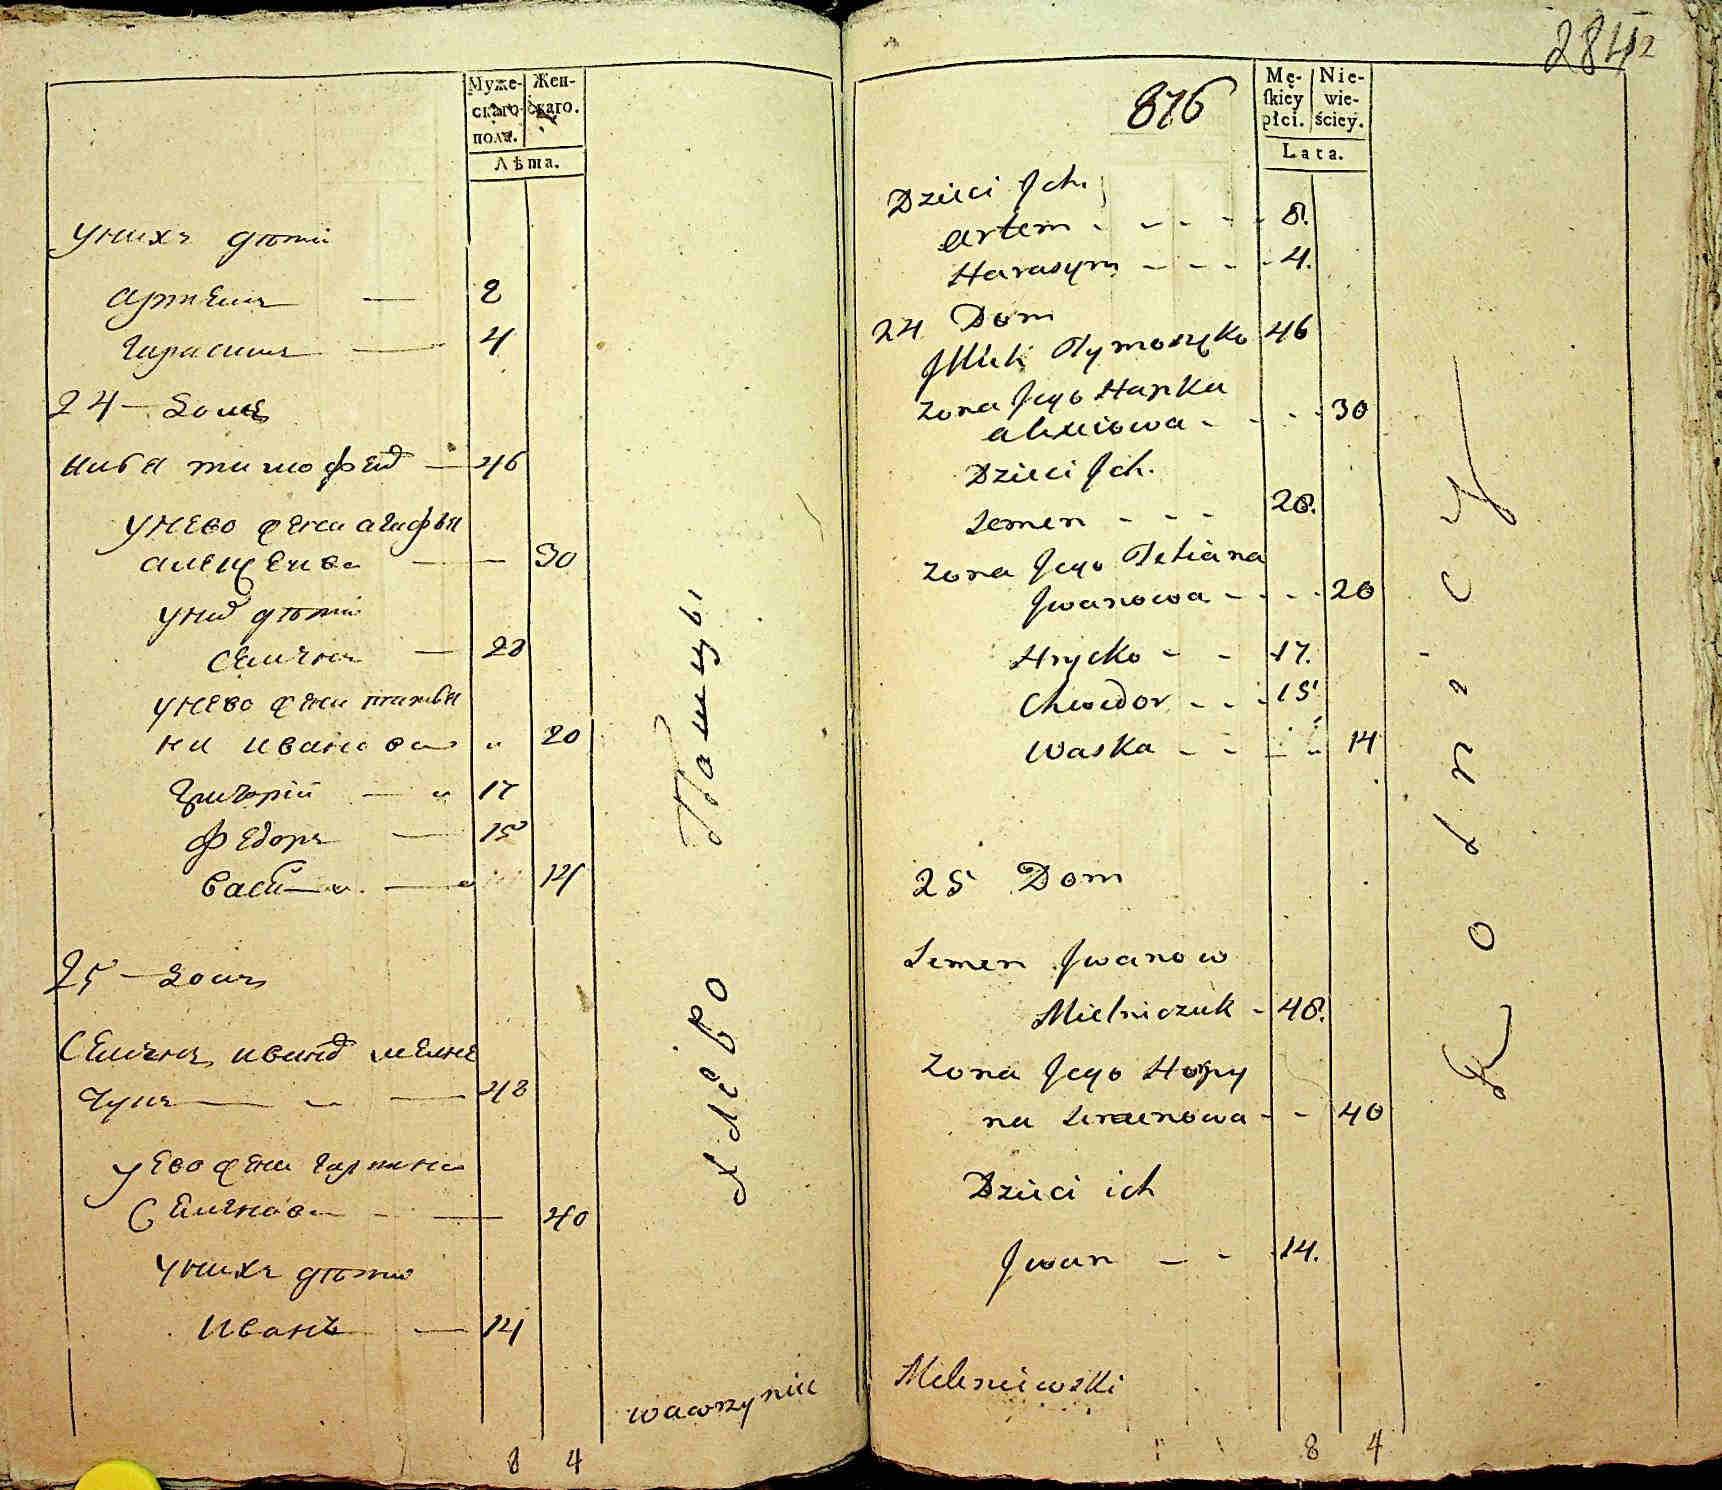 Муже-
скаго
пола.
Жен-
скаго.
Лѣта.
У нихъ дѣти
Артемъ — 8
Гарасимъ — 4
24 — Домъ
тимофеевъ — 46
У нево жена агафья
алещеива — 30
У нихъ дѣти
Семенъ — 28
У нево жена татья
на иванова 20
Григорій — 17
Федоръ — 15
Васка — 14
25 — Домъ
Семенъ ивановъ мелни
чукъ — 48
У ево жена гарпина
Семенова — 40
У нихъ дѣти
Иванъ — 14
Хлѣбо Пашцы
8 4
wawrzyniec
2842
876
Mę-
skiey
płci.
Nie-
wie-
ściey.
Lata.
Dzieci Jch
Artem - - - - 8.
Harasym - - - - 4.
24 Dom
Tymoszyko 46
Zona Jego Hapka
alexiowa - - - 30
Dzieci Jch.
Semen - - - 28.
Zona Jego Tetiana
Jwanowa - - - 20
Hrycko - - 17.
Chwedor - - - 15
Waska - - 14
25 Dom
Semen Jwanow
Mielniczuk - 48.
Zona Jego Horpy
na Semenowa - - 40
Dzieci ich
Jwan - - 14.
Rolnicy
Mileniewski
8 4